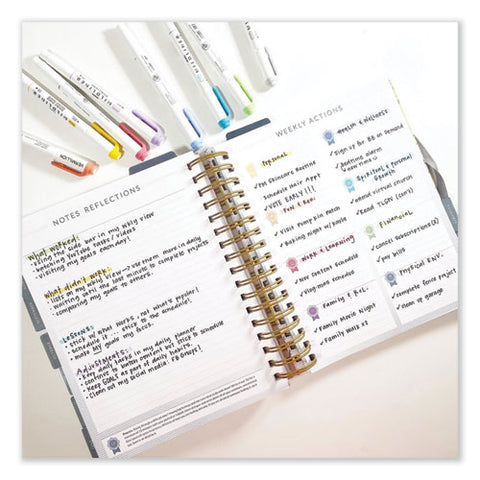 NOTES REFLECTIONS
What worked:
using the side bar in my wkly view
batching YouTube tasks / videos
visiting my goals each day!
What didn't work:
lists on my wkly view → use them more in daily
waiting until the last minute to complete projects
comparing my goals to others.
Lessons:
stick w/ what works, not what's popular!
schedule it... stick to the schedule!
make MY goals my focus.
Adjustments:
keep daily tasks in my daily planner
continue to batch content but stick 2 schedule
Keep GOALS as part of daily habits.
Clean out my social media. FB Group!
WEEKLY ACTIONS
Personal
✓ Pm Skincare Routine
✓ Schedule Hair Appt
✓ VOTE EARLY!!!
Fun & Rec.
✓ Visit pumpkin patch
✓ Baking night w/
Work & Learning
✓ Nov Content Schedule
✓ Vlogmas schedule
Family & Rel.
✓ Family Movie Night
✓ Family Walk x3
Health & Wellness:
✓ Sign up for BB on Demand
✓ bedtime alarm
Spiritual & Personal Growth
✓ attend virtual church
✓ Read
Financial
✓ cancel subscriptions (2)
✓ pay bills
Physical Env.
✓ complete fence project
✓ clean up garage